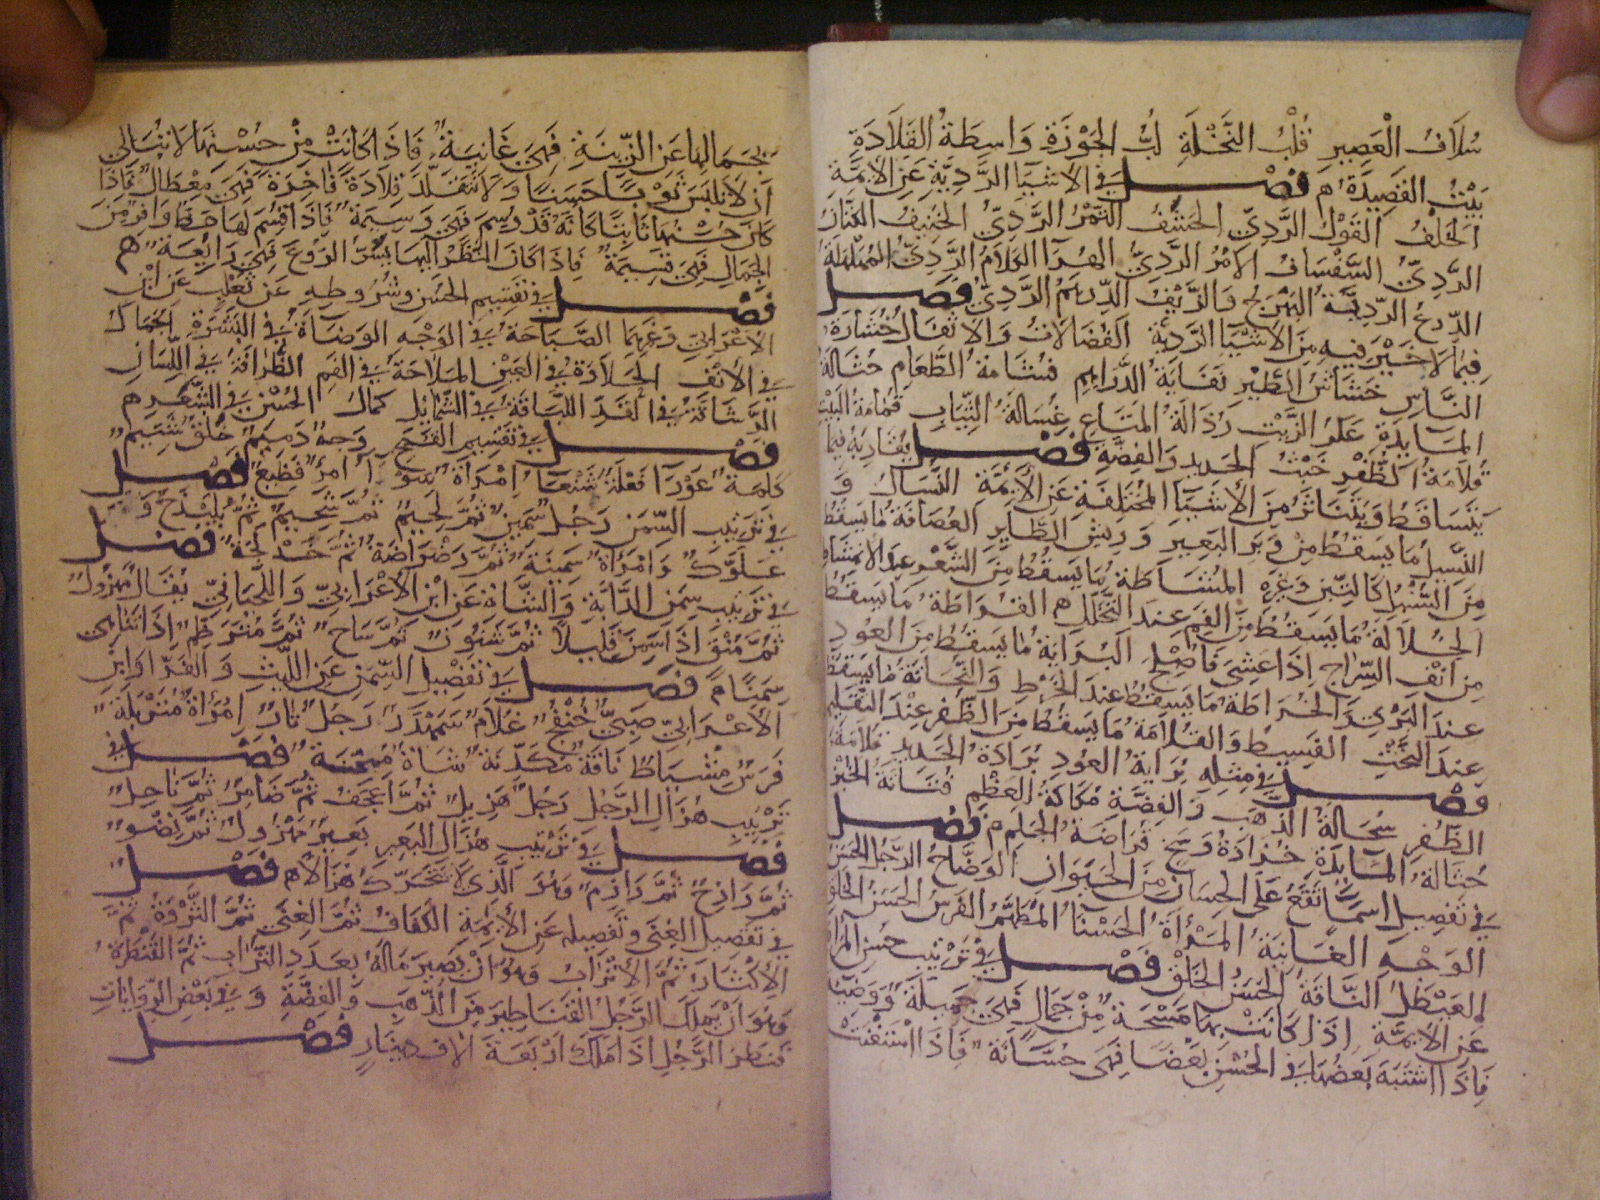 سُلَافُ الْعَصِيرِ قَلْبُ النَّخْلَةِ لُبُّ الجَوْزَةِ وَاسِطَةُ القَلَادَةِ
بَيْتُ القَصِيدَةِ م فصل في الاشيآ الرَّدِيَّةِ عَنِ الايمَّة
الخَلْفُ القَوْلُ الرَّدِيّ الحَشَفُ التَّمْرُ الرَّدِيّ الخَنِيفُ الكَتَّانُ
الرَّدِيّ السَّفْسَافُ الامْرُ الرَّدِيّ الهُرَآ الكَلَامُ الرَّدِيّ المُهَلْهَلَةُ
الدِّرْعُ الرَّدِيَّةُ البَهْرَجُ وَالزَّيْفُ الدِّرْهَمُ الرَّدِيّ فصل
فِيمَا لَا خَيْرَ فِيهِ مِنَ الاشْيَآ الرَّدِيَّةِ الفُضَالَاتُ وَالاثْفَالُ خُشَارَةُ
النَّاسِ خَشَاشُ الطَّيْرِ نُفَايَةُ الدَّرَاهِمِ قُشَامَةُ الطَّعَامِ حُثَالَةُ
المَايِدَةِ عَكَرُ الزَّيْتِ رُذَالَةُ المَتَاعِ غُسَالَةُ الثِّيَابِ قُمَامَةُ البَيْتِ
قُلَامَةُ الظُّفْرِ خَبَثُ الحَدِيدِ وَالفِضَّةِ فصل يُقَارِبُهُ فِيمَا
يَتَسَاقَطُ وَيَتَنَاثَرُ مِنَ الأَشْيَآ المُخْتَلِفَةِ عَنِ الأَيِمَّةِ النُّسَالُ وَ
النَّسِيلُ مَا يَسْقُطُ مِنْ وَبَرِ البَعِيرِ وَرِيشِ الطَّايِرِ العُصَافَةُ مَا يَسْقُطُ
مِنَ السُّنْبُلِ كَالتِّبْنِ وَغَيْرِهِ المُشَاطَةُ مَا يَسْقُطُ مِنَ الشَّعْرِ عِندَ الامْتِشَاطِ
الخُلَالَةُ مَا يَسْقُطُ مِنَ الفَمِ عِندَ التَّخَلُّلِ م القُرَاطَةُ مَا يَسْقُطُ
مِن انْفِ السِّرَاجِ إِذَا عَشِيَ فَاصْلِحَ البُرَايَةُ مَا يَسْقُطُ مِنَ العُودِ
عِندَ البَرْيِ وَالخُرَاطَةُ مَا يَسْقُطُ عِندَ الخَرْطِ وَالنُّحَاتَةُ مَا يَسْقُطُ
عِندَ النَّحْتِ القَسِيطُ وَالقُلَامَةُ مَا يَسْقُطُ مِنَ الظُّفْرِ عِنْدَ التَّقْلِيمِ
فصل في مِثْلِهِ بُرَايَةُ العُودِ بُرَادَةُ الحَدِيدِ قُلَامَةُ
الظُّفْرِ سُحَالَةُ الذَّهَبِ وَالفِضَّةِ مُكَاكَةُ العَظْمِ فُتَاتَةُ الخُبْزِ
حُثَالَةُ المَايِدَةِ قُرَاضَةُ الجَلَمِ م فصل
في تَفْصِيلِ اسمآ تَقَعُ عَلَى الحِسَانِ مِنَ الحَيَوَانِ الوَضَّاحُ الرَّجُلُ الحَسَنُ
الوَجْهِ الغَانِيَةُ المَرْأَةُ الحَسْنَا المُطَهَّمُ الفَرَسُ الحَسَنُ الخَلْقِ
العَيْطَلُ النَّاقَةُ الحَسَنُ الخَلْقِ فصل في تَرْتِيبِ حسن المرأة
عَنِ الايمَّةِ إِذَا كَانَتْ بِهَا مَسْحَةٌ مِنْ جَمَالٍ فَهِيَ جَمِيلَةٌ وَوَضِيئَةٌ
فَإِذَا اشْتَبَهَ بَعْضُهَا فِي الحُسْنِ بَعْضًا فَهِيَ حُسَّانَةٌ فَإِذَا اسْتَغْنَتْ
بِجَمَالِهَا عَنِ الزِّينَةِ فَهِيَ غَانِيَةٌ فَاذَا كَانَتْ مِنْ حُسْنِهَا لَا تُبَالِي
أَن لَا تَلْبَسَ ثَوْبًا حَسَنًا وَلَا تَتَقَلَّدَ قِلَادَةً فَاخِرَةً فَهِيَ مِعْطَالٌ فَاذَا
كَانَ حُسْنُهَا ثَابِتًا كَانَّهُ قَدْ وُسِمَ فَهِيَ وَسِيمَةٌ فَاذَا قُسِمَ لَهَا حَظٌّ وَافِرٌ مِنَ
الجَمَالِ فَهِيَ قَسِيمَةٌ فَاذَا كَانَ النَّظَرُ الَيْهَا يَسُرُّ الرُّوعَ فَهِيَ رَايِعَةٌ م
فصل في تَقْسِيمِ الحُسْنِ وَشُرُوطِهِ عَن ثَعْلَبٍ عَنِ ابْنِ
الاعْرَابِيّ وَغَيْرِهِمَا الصَّبَاحَةُ فِي الوَجْهِ الوَضَاءَةُ فِي البَشَرَةِ الجَمَالُ
فِي الأَنْفِ الحَلَاوَةُ فِي العَيْنِ المَلَاحَةُ فِي الفَمِ الظَّرَافَةُ فِي اللِّسَانِ
الرَّشَاقَةُ فِي القَدِّ اللَّبَاقَةُ فِي الشَّمَايِلِ كَمَالُ الحُسْنِ فِي الشَّعَرِ م
فصل في تَقْسِيمِ القُبْحِ وَجْهٌ دَمِيمٌ خَلْقٌ شَتِيمٌ
كَلِمَةٌ عَوْرَآ فَعْلَةٌ شَنْعَآ امْرَأَةٌ سَوْآ أَمْرٌ فَظِيعٌ فصل
فِي تَرْتِيبِ السِّمَنِ رَجُلٌ سَمِينٌ ثُمَّ لَحِيمٌ ثُمَّ شَحِيمٌ ثُمَّ بَلَنْدَحٌ وَ
عَكَوَّكٌ وَامْرَأَةٌ سَمِينَةٌ ثُمَّ رَضْرَاضَةٌ ثُمَّ خَدَلَّجَةٌ فصل
فِي تَرْتِيبِ سِمَنِ الدَّابَّةِ وَالشَّاةِ عَنِ ابْنِ الأَعْرَابِيّ وَاللِّحْيَانِيّ يُقَالُ مَهْزُولٌ
ثُمَّ مُنْقٍ اذَا سَمِنَ قَلِيلًا ثُمَّ شَنُونٌ ثُمَّ سَاحٌ ثُمَّ مُتَرَطِّمٌ اذَا تَنَاهَى
سِمَنًا م فصل فِي تَفْصِيلِ السِّمَنِ عَنِ اللَّيْثِ وَالفَرَّا وَابْنِ
الأَعْرَابِيّ صَبِيٌّ خُنْفُجٌ غُلَامٌ سَمَهْدَرٌ رَجُلٌ تَارٌّ امْرَأَةٌ مُتَرَبِّلَةٌ
فَرَسٌ مِشْيَاطٌ نَاقَةٌ مُكْدَنَةٌ شَاةٌ مُمِخَّةٌ فصل في
تَرْتِيبِ هُزَالِ الرَّجُلِ رَجُلٌ هَزِيلٌ ثُمَّ أَعْجَفُ ثُمَّ ضَامِرٌ ثُمَّ نَاحِلٌ
فصل فِي تَرْتِيبِ هُزَالِ البَعِيرِ بَعِيرٌ مَهْزُولٌ ثُمَّ نِضْوٌ
ثُمَّ رَازِحٌ ثُمَّ رَازِمٌ وَهُوَ الَّذِي لَا يَتَحَرَّكُ هُزَالًا م فصل
فِي تَفْصِيلِ الغِنَى وَتَفْصِيلِهِ عَنِ الأَيِمَّةِ الكَفَافُ ثُمَّ الغِنَى ثُمَّ الثَّرْوَةُ ثُمَّ
الإِكْثَارُ ثُمَّ الأَتْرَابُ وَهُوَ أَنْ يَصِيرَ مَالُهُ بِعَدَدِ التُّرَابِ ثُمَّ القَنْطَرَةُ
وَهُوَ أَنْ يَمْلِكَ الرَّجُلُ القَنَاطِيرَ مِنَ الذَّهَبِ وَالفِضَّةِ وَفِي بَعْضِ الرِّوَايَاتِ
قَنْطَرَ الرَّجُلُ اذَا مَلَكَ ارْبَعَةَ الَاف دِينَارٍ فصل